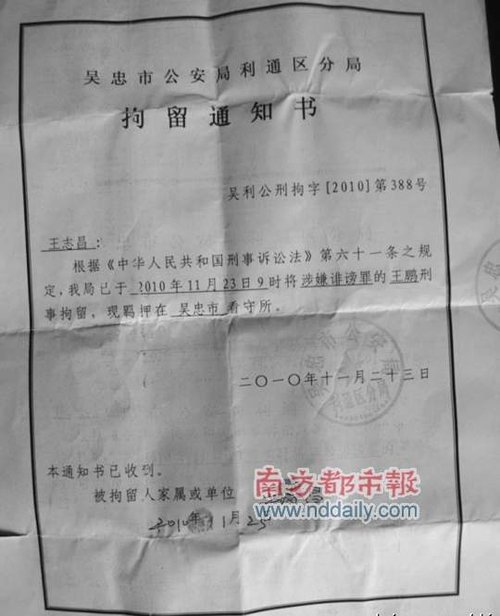 吴忠市公安局利通区分局
拘留通知书
吴利公刑拘字[2010]第388号
王志昌：
根据《中华人民共和国刑事诉讼法》第六十一条之规
定，我局已于 2010年11月23日9时将涉嫌诽谤罪的王鹏刑
事拘留，现羁押在 吴忠市 看守所。
二〇一〇年十一月二十三日
本通知书已收到。
被拘留人家属或单位
2010年11月25
南方都市報
www.nddaily.com